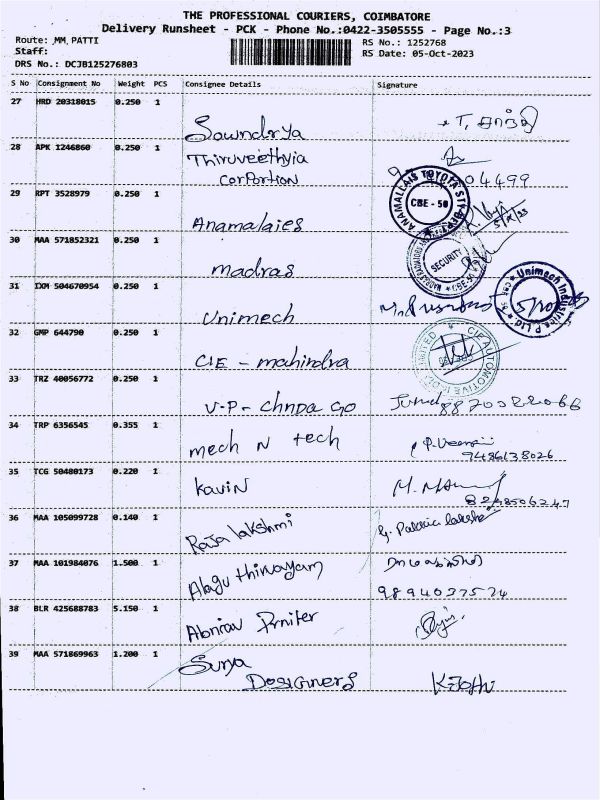 THE PROFESSIONAL COURIERS, COIMBATORE
Delivery Runsheet - PCK - Phone No.:0422-3505555 - Page No.:3
Route: ,MM, PATTI
RS No.: 1252768
Staff:
RS Date: 05-Oct-2023
DRS No.: DCJB125276803
S No Consignment No Weight PCS Consignee Details Signature
27 HRD 20318015 0.250 1
Sowndrya
28 APK 1246860 0.250 1
Thiruveethyia
Corportion 04499
29 RPT 3528979 0.250 1
ANAMALLAIS TOYOTA
CBE - 50
Anamalaies
30 MAA 571852321 0.250 1
SECURITY
madras
31 IXM 504670954 0.250 1
Unimech Industries P Ltd
Unimech
32 GMP 644790 0.250 1
CIE AUTOMOTIVE LIMITED
CIE - mahindra
33 TRZ 40056772 0.250 1
V.P- Chnda Go 8870022066
34 TRP 6356545 0.355 1
mech N tech
9486138026
35 TCG 50480173 0.220 1
Kavin
8248506247
36 MAA 105099728 0.140 1
Raja lakshmi
37 MAA 101984076 1.500 1
Alagu thirvayam
9894027574
38 BLR 425688783 5.150 1
Abnirav Prniter
39 MAA 571869963 1.200 1
Surya
Designers